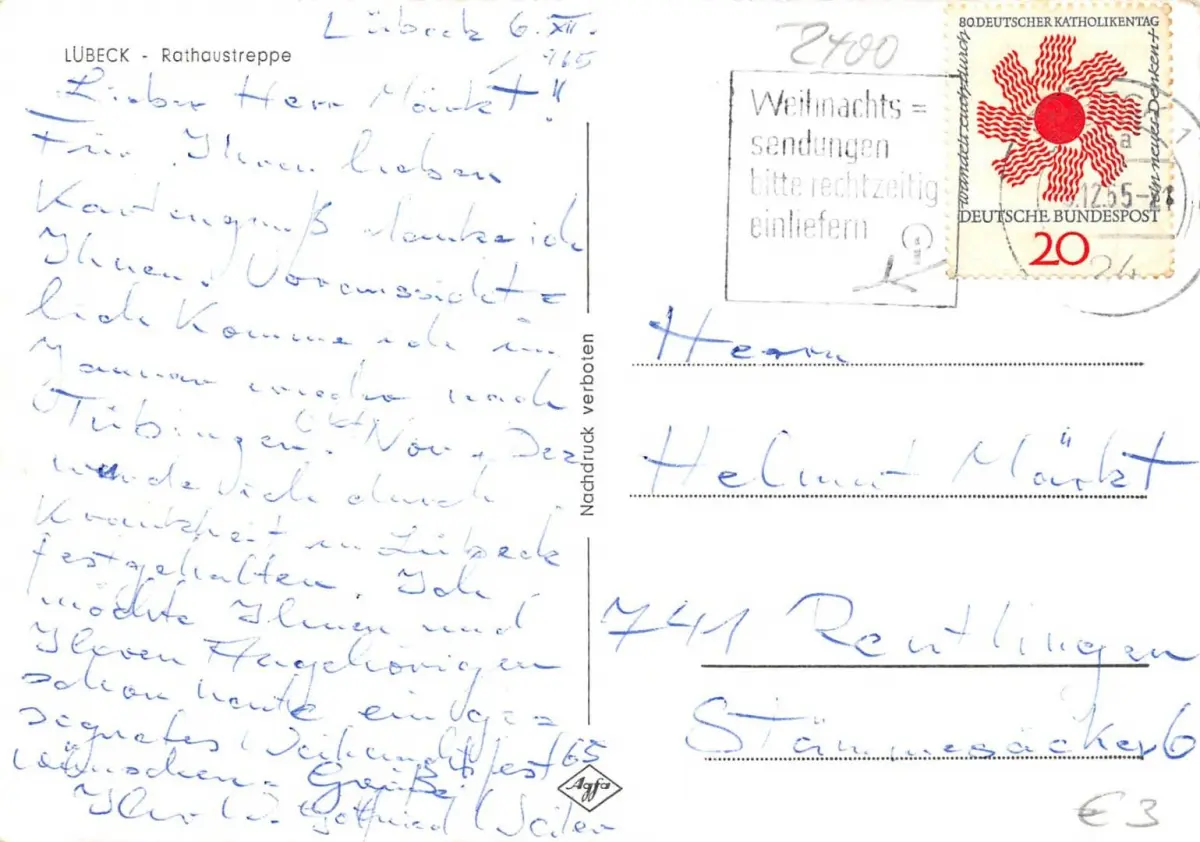 Lübeck 6. XII.
1965
LÜBECK - Rathaustreppe
Lieber Herr Märkt!
Für Ihren lieben
Kartengruß danke ich
Ihnen. Voraussicht=
lich komme ich im
Januar wieder nach
Tübingen. Okt. Nov. Dez
wurde ich durch
Krankheit in Lübeck
festgehalten. Ich
möchte Ihnen und
Ihren Angehörigen
schon heute ein ge=
segnetes Weihnachtsfest 65
wünschen. Grüße
Ihr Gottfried
Nachdruck verboten
Agfa
2400
Weihnachts=
sendungen
bitte rechtzeitig
einliefern
80. DEUTSCHER KATHOLIKENTAG
wandelt euch durch
ein neues Denken
DEUTSCHE BUNDESPOST
20
a
.12.65-
24
Herrn
Helmut Märkt
741 Reutlingen
Stämmesäcker 6
€ 3